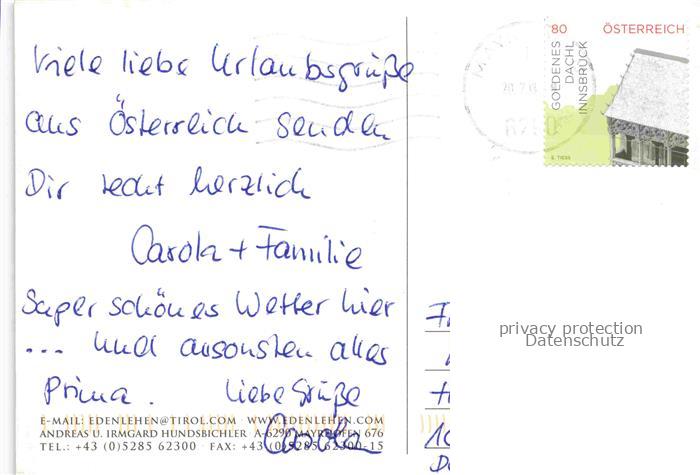 Viele liebe Urlaubsgrüße
aus Österreich senden
Dir recht herzlich
Carola + Familie
Super schönes Wetter hier
... und ansonsten alles
Prima. liebe Grüße
Carola
E-MAIL: EDENLEHEN@TIROL.COM WWW.EDENLEHEN.COM
ANDREAS U. IRMGARD HUNDSBICHLER A-6290 MAYRHOFEN 676
TEL.: +43 (0)5285 62300 · FAX: +43 (0)5285 62300-15
80 ÖSTERREICH
GOLDENES
DACHL
INNSBRUCK
privacy protection
Datenschutz